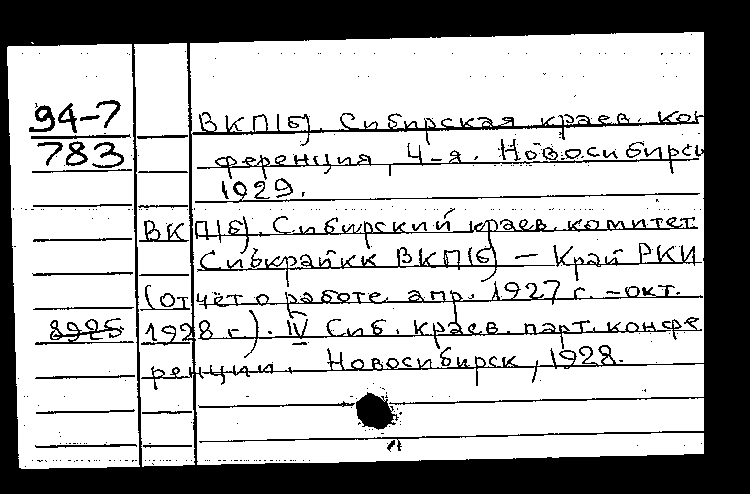 94-7
783
ВКП(б). Сибирская краев. кон
ференция, 4-я. Новосибирск
1929.
ВКП(б). Сибирский краев. комитет.
Сибкрайкк ВКП(б) — Край РКИ
(Отчёт о работе. апр. 1927 г. – окт.
8925
1928 г.). IV Сиб. краев. парт. конфе
ренции. Новосибирск, 1928.